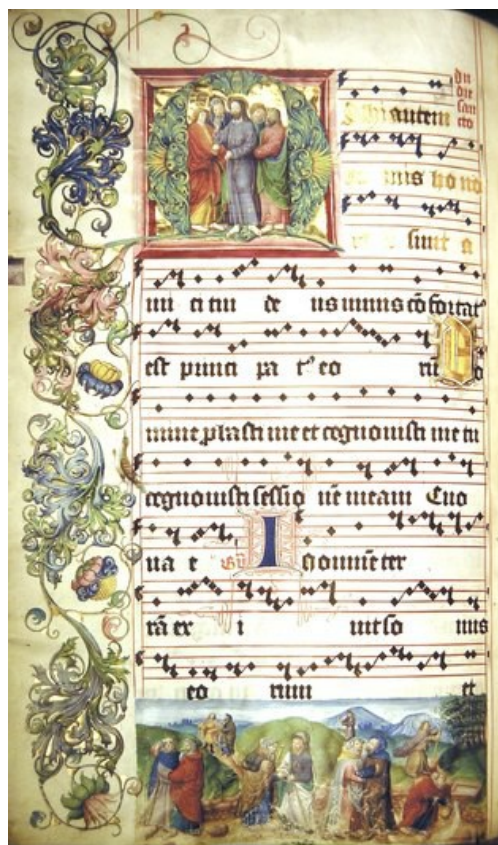 die
san
cto
autem
nimis ho no
sunt a
mi ci tui de us nimis cõ fortat⁹
est princi pa t⁹ eo rū Do
mine ꝓbasti me et cognouisti me tu
cognouisti sessio nē meam Euo
ua e Gr̄ In omnē ter
rā ex i uit so nus
eo rum et